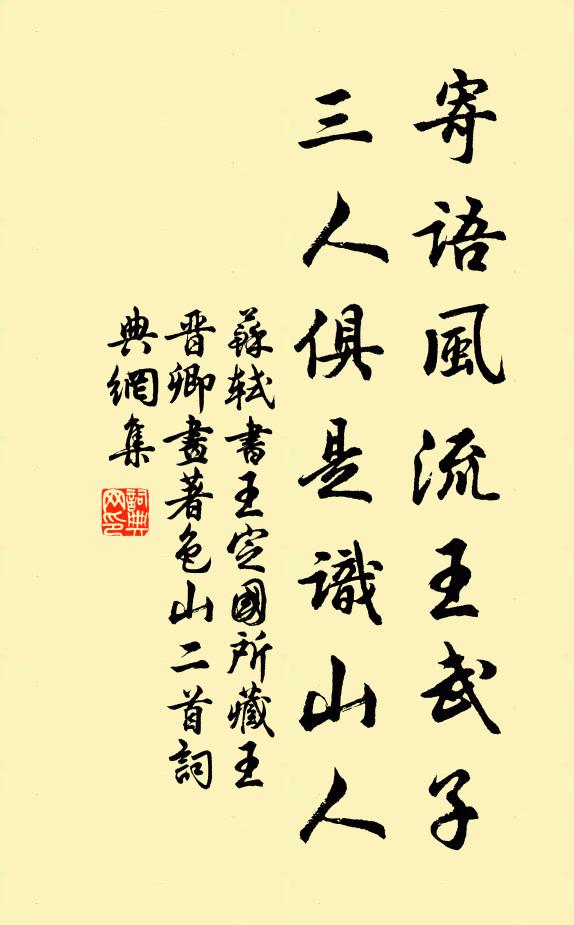 寄語風流王武子
三人俱是識山人
蘇軾書王定國所藏王
晋卿畫著色山二首詞
典網集
詞典網印